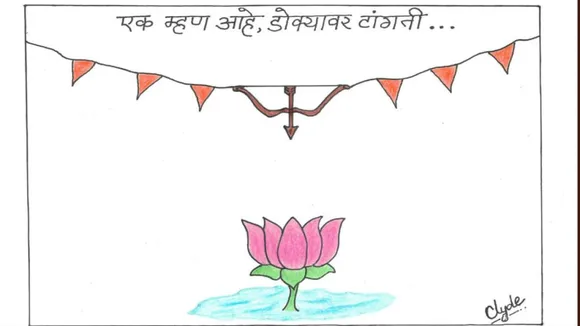 एक म्हण आहे, डोक्यावर टांगती...
Clyde